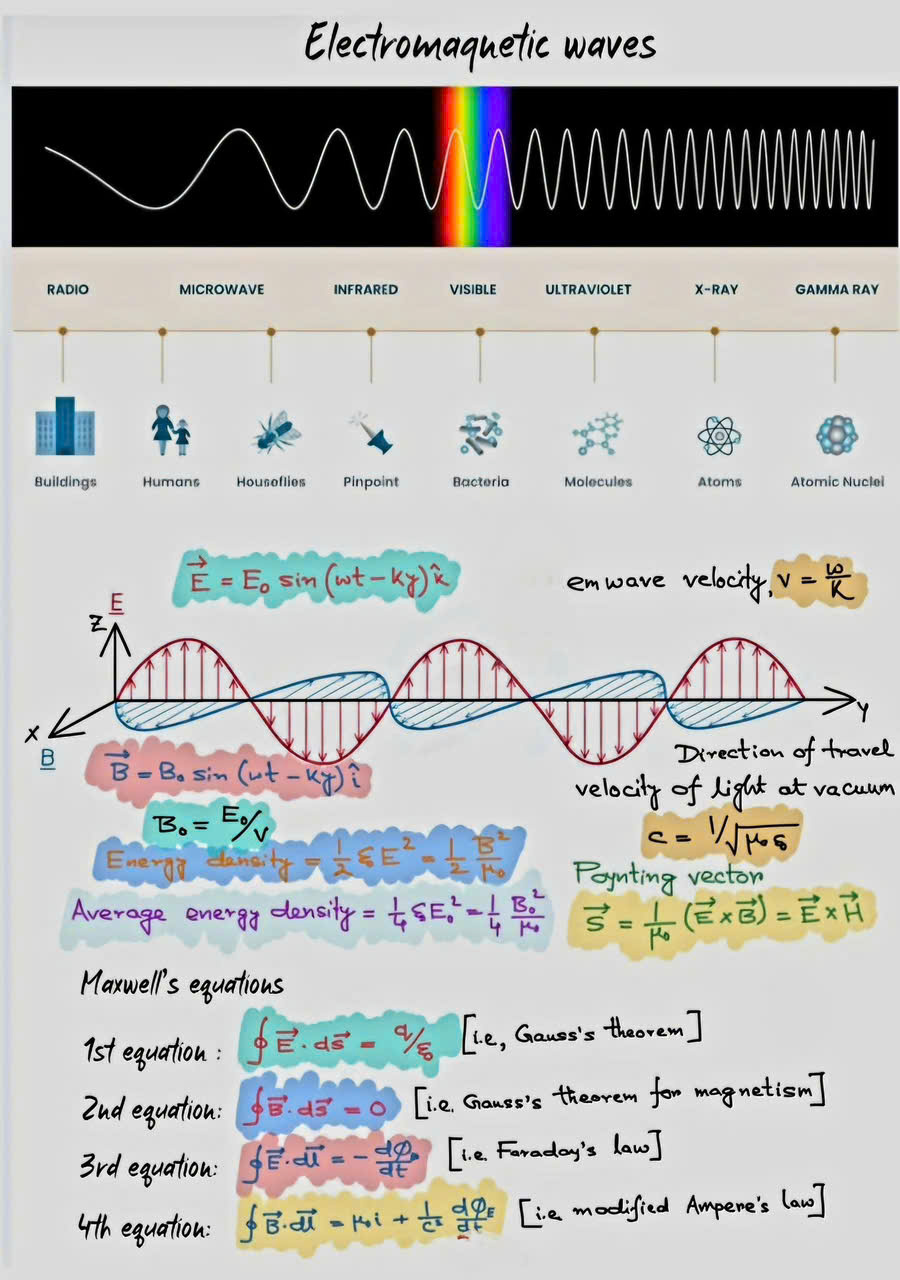 Electromagnetic waves
RADIO MICROWAVE INFRARED VISIBLE ULTRAVIOLET X-RAY GAMMA RAY
Buildings Humans Houseflies Pinpoint Bacteria Molecules Atoms Atomic Nuclei
E⃗ = E₀ sin (ωt − ky) k̂
em wave velocity, v = ω/K
E
Z
X
B
Y
Direction of travel
B⃗ = B₀ sin (ωt − ky) î
velocity of light at vacuum
B₀ = E₀/v
c = 1/√μ₀ε₀
Energy density = 1/2 ε₀E² = 1/2 B²/μ₀
Poynting vector
Average energy density = 1/4 ε₀E₀² = 1/4 B₀²/μ₀
S⃗ = 1/μ₀ (E⃗ × B⃗) = E⃗ × H⃗
Maxwell's equations
1st equation : ∮ E⃗ · ds⃗ = q/ε₀ [i.e, Gauss's theorem]
2nd equation: ∮ B⃗ · ds⃗ = 0 [i.e. Gauss's theorem for magnetism]
3rd equation: ∮ E⃗ · dl⃗ = − dφ/dt [i.e. Faraday's law]
4th equation: ∮ B⃗ · dl⃗ = μ₀i + 1/c² dφ_E/dt [i.e. modified Ampere's law]